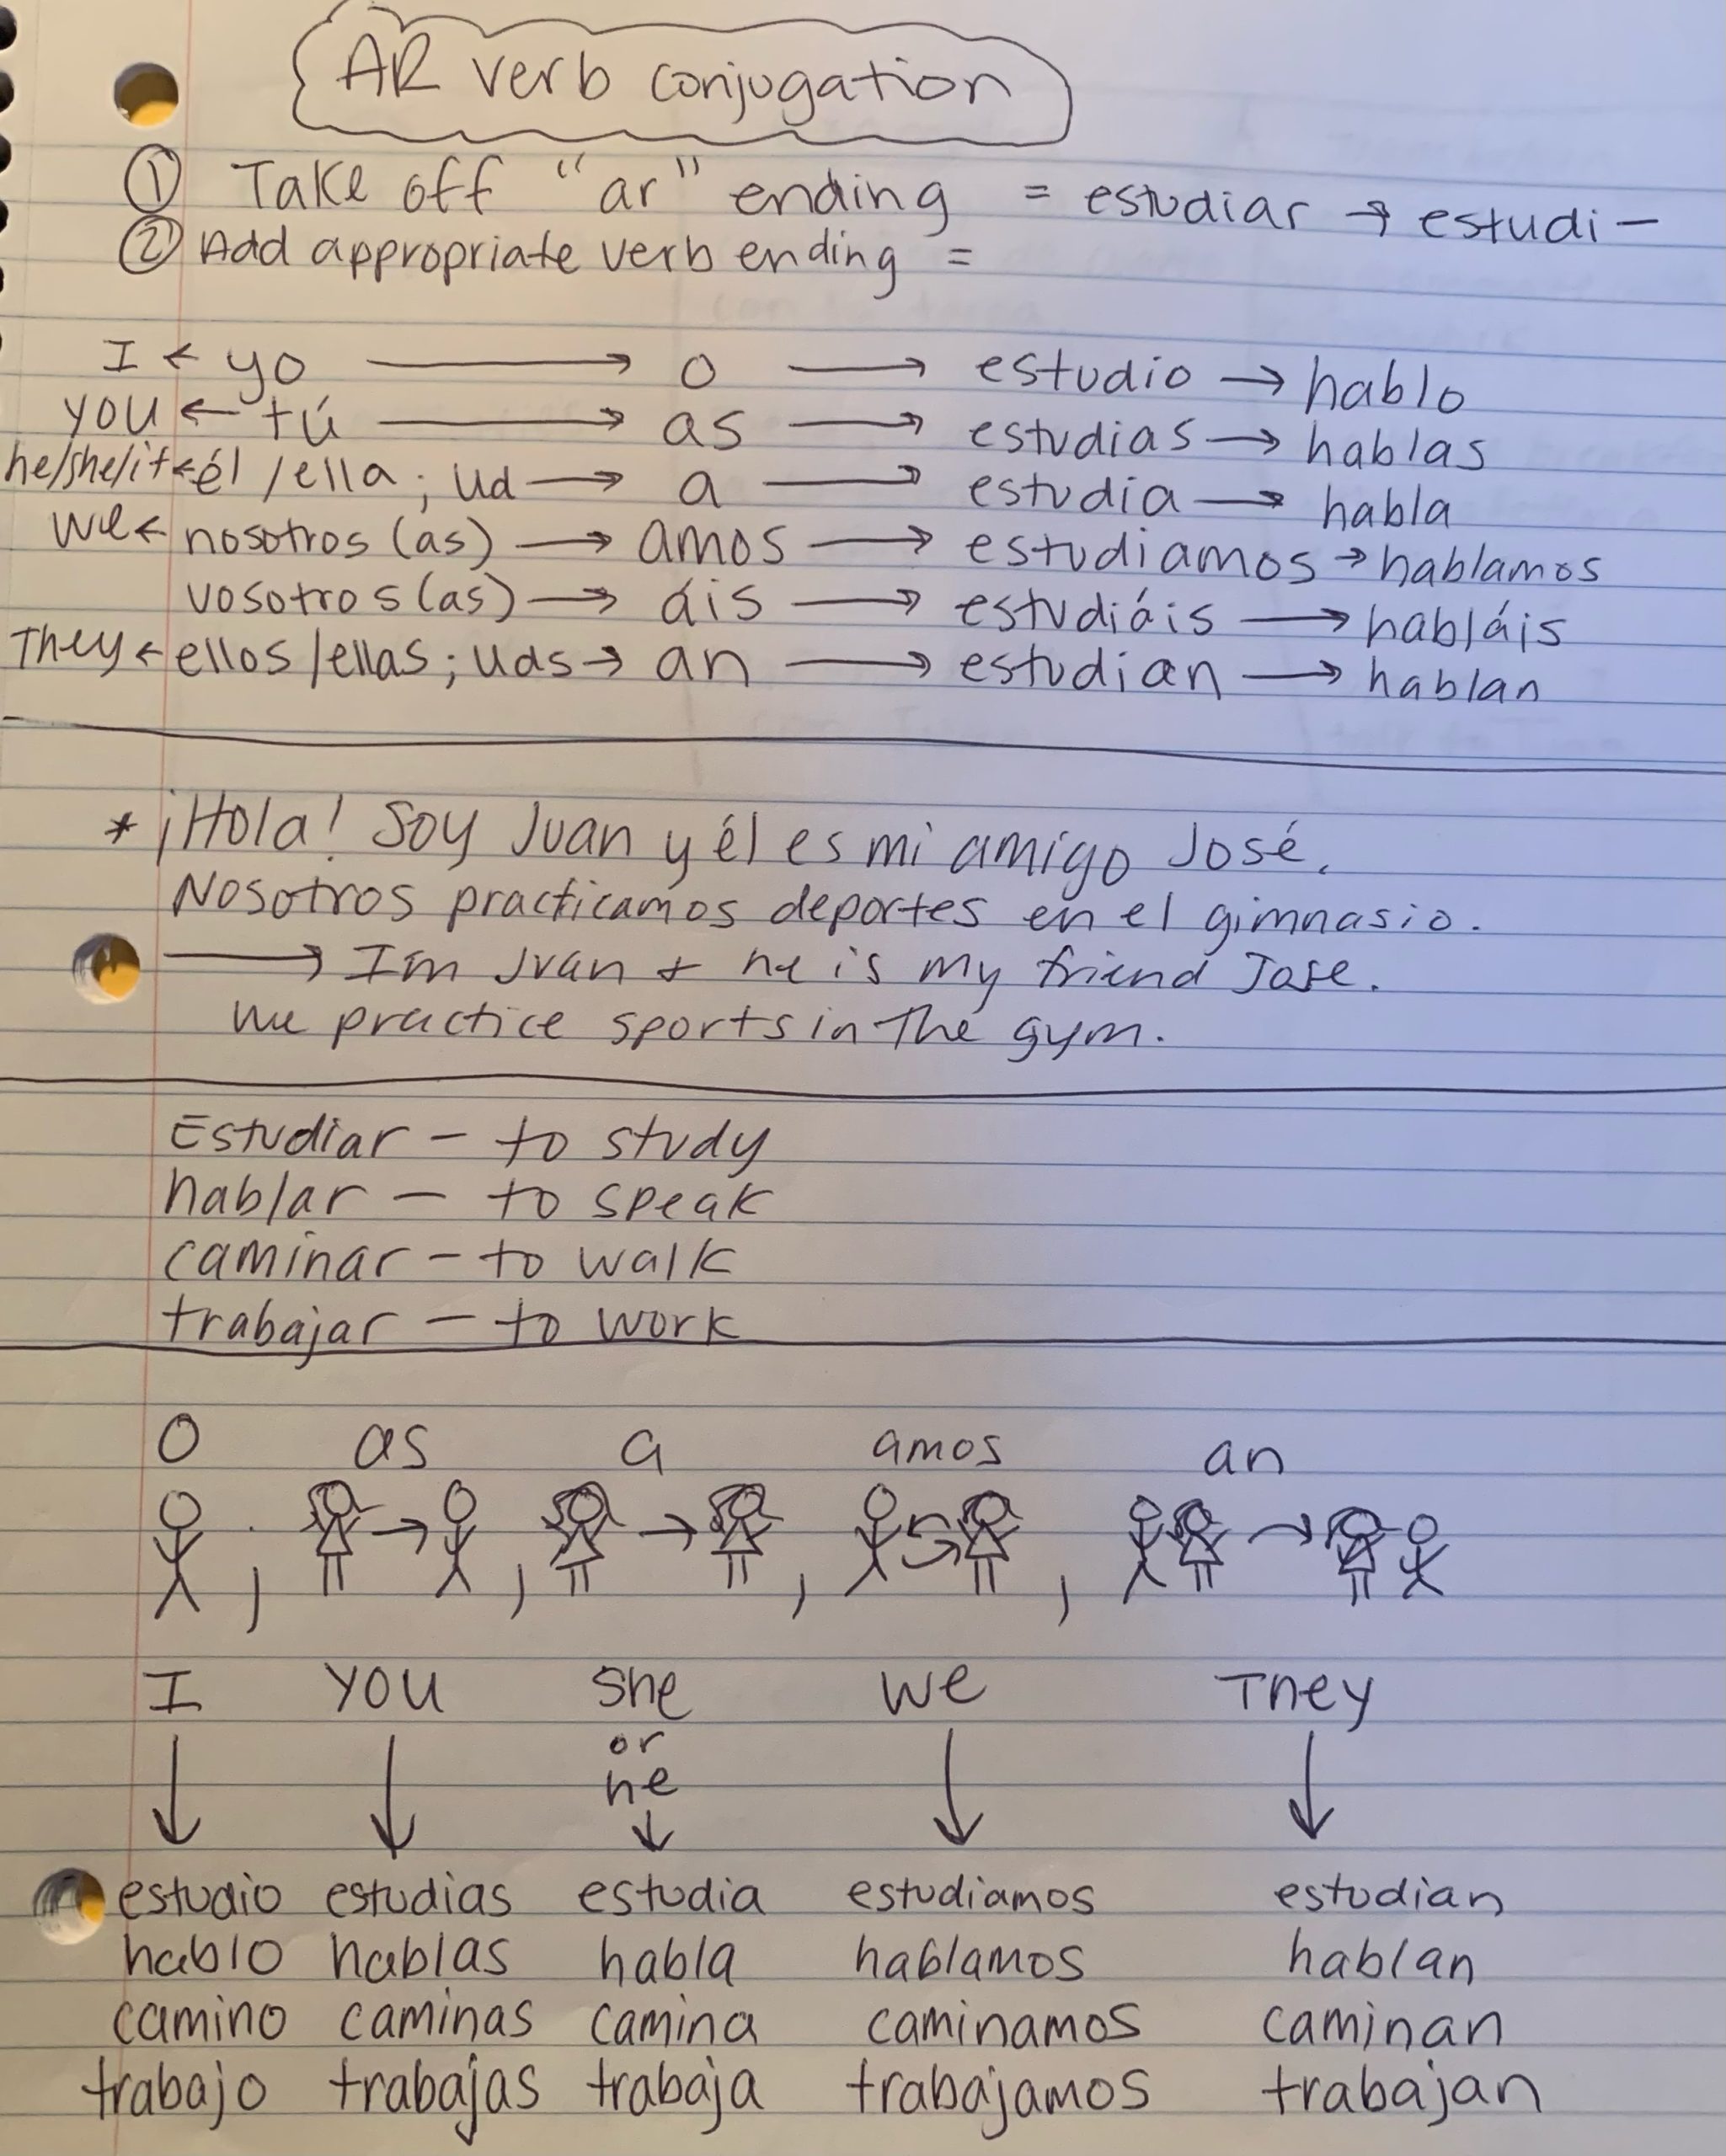 AR verb conjugation
① Take off "ar" ending = estudiar → estudi-
② Add appropriate verb ending =
I ← yo → o → estudio → hablo
you ← tú → as → estudias → hablas
he/she/it ← él/ella; Ud → a → estudia → habla
we ← nosotros (as) → amos → estudiamos → hablamos
vosotros (as) → áis → estudiáis → habláis
They ← ellos/ellas; Uds → an → estudian → hablan
* ¡Hola! Soy Juan y él es mi amigo José.
Nosotros practicamos deportes en el gimnasio.
→ Im Juan + he is my friend Jose.
we practice sports in The gym.
Estudiar - to study
hablar - to speak
caminar - to walk
trabajar - to work
O as a amos an
→ , → , → , , →
I YOU She we They
or
he
estudio estudias estudia estudiamos estudian
hablo hablas habla hablamos hablan
camino caminas camina caminamos caminan
trabajo trabajas trabaja trabajamos trabajan